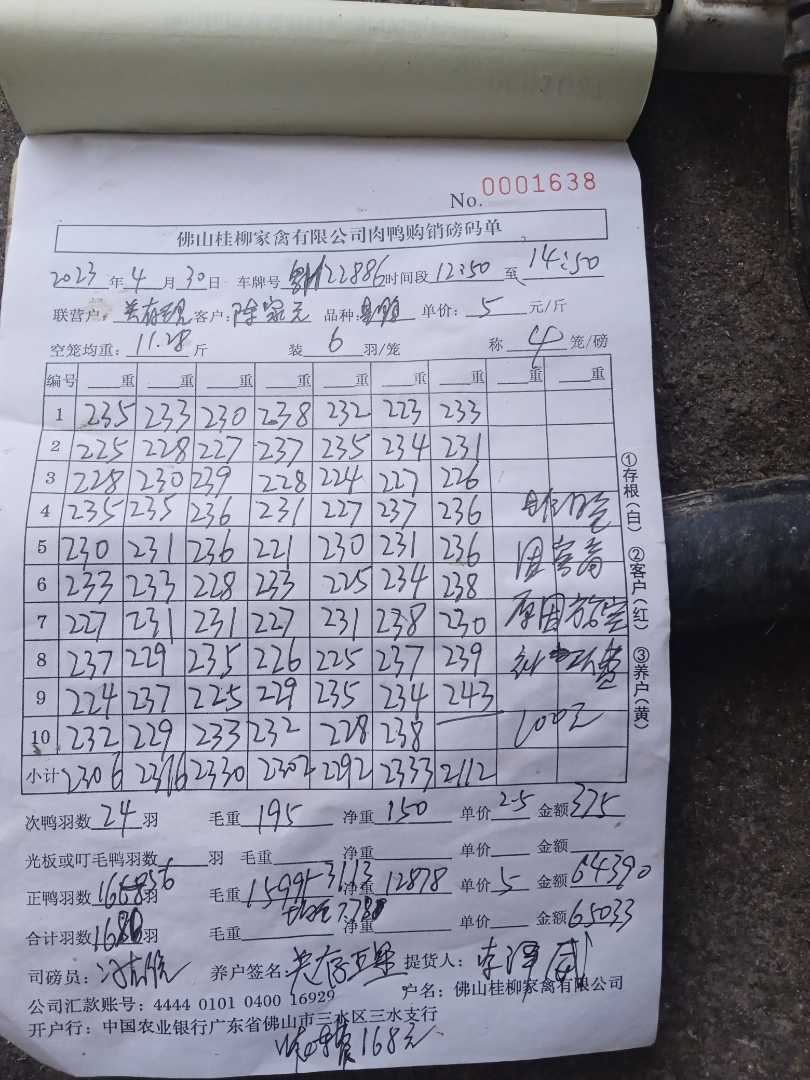 No. 0001638
佛山桂柳家禽有限公司肉鸭购销磅码单
2023 年 4 月 30 日 车牌号 22886 时间段 12:50 至 14:50
联营户: 关存 客户: 陈家元 品种: 单价: 5 元/斤
空笼均重: 11.28 斤 装 6 羽/笼 称 4 笼/磅
编号 重 重 重 重 重 重 重 重 重
1 235 233 230 238 232 223 233
2 225 228 227 237 235 234 231
3 228 230 239 228 224 227 226
4 235 235 236 231 227 237 236
5 230 231 236 221 230 231 236
6 233 233 228 233 225 234 238
7 227 231 231 227 231 238 230
8 237 229 235 226 225 237 239
9 224 237 225 229 235 234 243
10 232 229 233 232 228 238
小计 2306 2316 2330 2302 2292 2333 2112
原因
100元
①存根(白) ②客户(红) ③养户(黄)
次鸭羽数 24 羽 毛重 195 净重 150 单价 2.5 金额 375
光板或叮毛鸭羽数 羽 毛重 净重 单价 金额
正鸭羽数 1656 羽 毛重 15991 3113 净重 12878 单价 5 金额 64390
合计羽数 1680 羽 毛重 净重 单价 金额 65033
司磅员: 养户签名: 关存 提货人: 李
公司汇款账号: 4444 0101 0400 16929 户名: 佛山桂柳家禽有限公司
开户行: 中国农业银行广东省佛山市三水区三水支行
168元